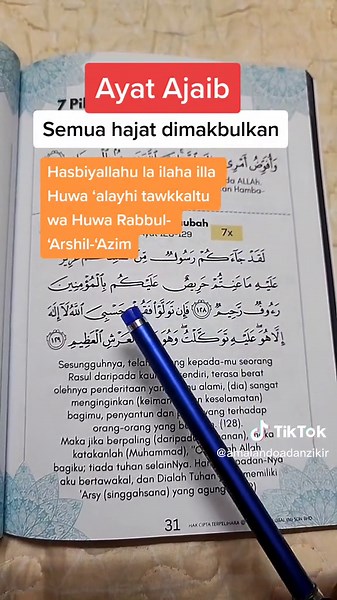 7 Pil
Ayat Ajaib
Semua hajat dimakbulkan
وَأُفَوِّضُ أَمْرِي
da ALLAH.
an Hamba-
Hasbiyallahu la ilaha illa
Huwa ‘alayhi tawkkaltu
wa Huwa Rabbul-
‘Arshil-‘Azim
ubah
128-129
7x
لَقَدْ جَآءَكُمْ رَسُولٌ مِّنْ
عَلَيْهِ مَا عَنِتُّمْ حَرِيصٌ عَلَيْكُم بِٱلْمُؤْمِنِينَ
رَءُوفٌ رَّحِيمٌ ﴿١٢٨﴾ فَإِن تَوَلَّوْا۟ فَقُلْ حَسْبِىَ ٱللَّهُ لَآ إِلَٰهَ
إِلَّا هُوَ عَلَيْهِ تَوَكَّلْتُ وَهُوَ ٱلْعَرْشِ ٱلْعَظِيمِ ﴿١٢٩﴾
Sesungguhnya, telah kepada-mu seorang
Rasul daripada kaum sendiri, terasa berat
olehnya penderitaan yang mu alami, (dia) sangat
menginginkan (keimanan keselamatan)
bagimu, penyantun dan terhadap
orang-orang yang (128).
Maka jika berpaling (daripada maka
katakanlah (Muhammad), Allah
bagiku; tiada tuhan selainNya. Hanya -Nya
aku bertawakal, dan Dialah Tuhan memiliki
'Arsy (singgahsana) yang agung
TikTok
@amalandoadanzikir
31
HAK CIPTA TERPELIHARA